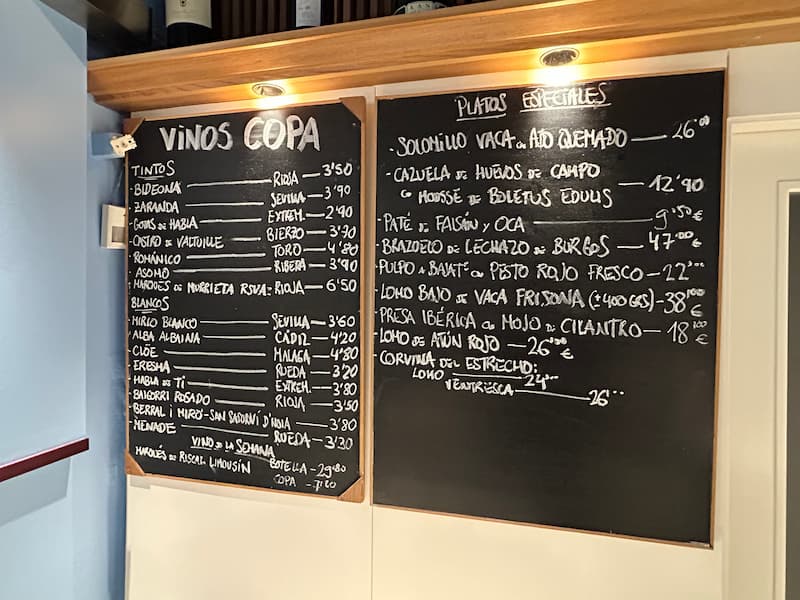 VINOS COPA
TINTOS
- BIDEONA — RIOJA — 3'50
- ZARANDA — SEVILLA — 3'90
- GOTAS DE HABLA — EXTREM. — 2'90
- CASTRO DE VALTUILLE — BIERZO — 3'70
- ROMÁNICO — TORO — 4'80
- ASOMO — RIBERA — 3'90
- MARQUES DE MURRIETA RSVA - RIOJA — 6'50
BLANCOS
- MIRLO BLANCO — SEVILLA — 3'60
- ALBA ALBAINA — CÁDIZ — 4'20
- CLÖE — MALAGA — 4'80
- ERESMA — RUEDA — 3'20
- HABLA DE TI — EXTREM. — 3'80
- BAIGORRI ROSADO — RIOJA — 3'50
- BERRAL I MIRÓ - SAN SADURNÍ D'NOIA — 3'80
- MENADE — RUEDA — 3'30
VINO DE LA SEMANA
MARQUÉS DE RISCAL LIMOUSIN BOTELLA - 29'80
COPA - 7'80
PLATOS ESPECIALES
- SOLOMILLO VACA AJO QUEMADO — 26'00
- CAZUELA DE HUEVOS DE CAMPO
CO MOUSSE DE BOLETUS EDULIS — 12'90
- PATÉ DE FAISÁN Y OCA — 9'50 €
- BRAZUELO DE LECHAZO DE BURGOS — 47'00 €
- PULPO A BAJATª CO PESTO ROJO FRESCO — 22'00
- LOMO BAJO DE VACA FRISONA (±400 GRS) — 38'00 €
- PRESA IBÉRICA CO MOJO DE CILANTRO — 18'00 €
- LOMO DE ATÚN ROJO — 26'00 €
- CORVINA DEL ESTRECHO:
LOMO — 24'00
VENTRESCA — 26'00